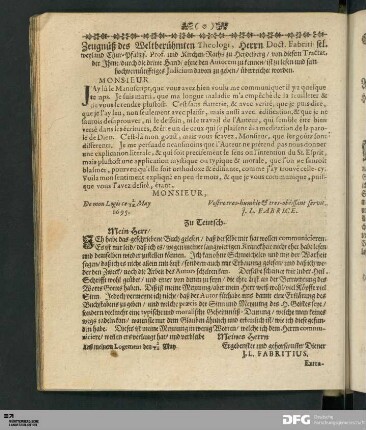 Zeugnüß des Weltberühmten Theologi, Herrn Doct. Fabritii sel.
weyland Chur-Pfaltzs. Prof. und Kirchen-Raths zu Heydelberg / von diesem Tractat,
der Ihm durch die dritte Hand / ohne den Autorem zu kennen / ist zu lesen und sein
hochvernünfftiges Judicium davon zu geben / überreicht worden.
MONSIEUR
J'Ay lû le Manuscript, que vous avez bien voulu me communiquer il ya quelque
temps. Je suis marri, que ma longue maladie m'a empêché de la
vous le rendre plustost. C'est sans flatterie, & avec verité, que je puis dire,
que je l'ay leu, non seulement avec plaisir, mais aussi avec edification, & que je ne
sçaurois desapprouver, ni le dessein, ni le travail de l'Auteur, qui semble être bien
versé dans les ecritures, & être un de ceux qui se plaisent à la meditation de la paro-
le de Dieu. C'est là mon goût, mais vous sçavez, Monsieur, que les goûts sont
differents. Je me persuade neantmoins que l'Auteur ne pretend pas nous donner
une explication literale, & qui soit precisement le sens ou l'intention du St. Esprit,
mais plustost une application mystique ou typique & morale, que l'on ne sçauroit
blasmer, pourveu qu'elle soit conforme à la foy & edifiante, comme j'ay trouvé celle-cy.
Voila mon sentiment expliqué en peu de mots, & que je vous communique, puis-
que vous l'avez desiré, étant,
MONSIEUR,
De mon Logis ce May
1695.
Vostre tres-humble & tres-obeissant servit.
J. L. FABRICE.
Zu Teutsch.
Mein Herr/
ICh habe das geschriebene Buch gelesen / das derselbe mir hat wollen communiciren.
Es ist mir leid / daß ich es / wegen meiner langwierigen Kranckheit nicht eher habe lesen
und demselben wieder zustellen können. Ich kan ohne Schmeicheley und mit der Warheit
sagen / daß ich es nicht allein mit lust / sondern auch mit Erbauung gelesen / und daß ich we-
der den Zweck / noch die Arbeit des Autors schelten kan. Derselbe scheinet mir in der Heil.
Schrifft wohl geübet / und einer von denen zu seyn / die ihre lust an der Betrachtung des
Worts Gottes haben. Dieses ist meine Meynung aber mein Herr weiß wohl / viel Köpffe viel
Sinn. Jedoch vermeyne ich nicht / daß der Autor suche uns darin eine Erklärung des
Buchstabens zu geben / und welche præcis der Sinn und Meynung des H. Geistes seye /
sondern vielmehr eine typische und moralische Geheimnüß-Deutung / welche man keines
wegs tadeln kan / wann sie mit dem Glauben ähnlich und erbaulich ist / wie ich diese gefun-
den habe. Dieses ist meine Meynung in wenig Worten / welche ich dem Herrn commu-
niciere / weilen er es verlangt hat / und verbleibe
Meines Herrn
Auß meinem Logement den May.
Ergebenster und gehorsamster Diener
J. L. FABRITIUS.
Extra-
DFG